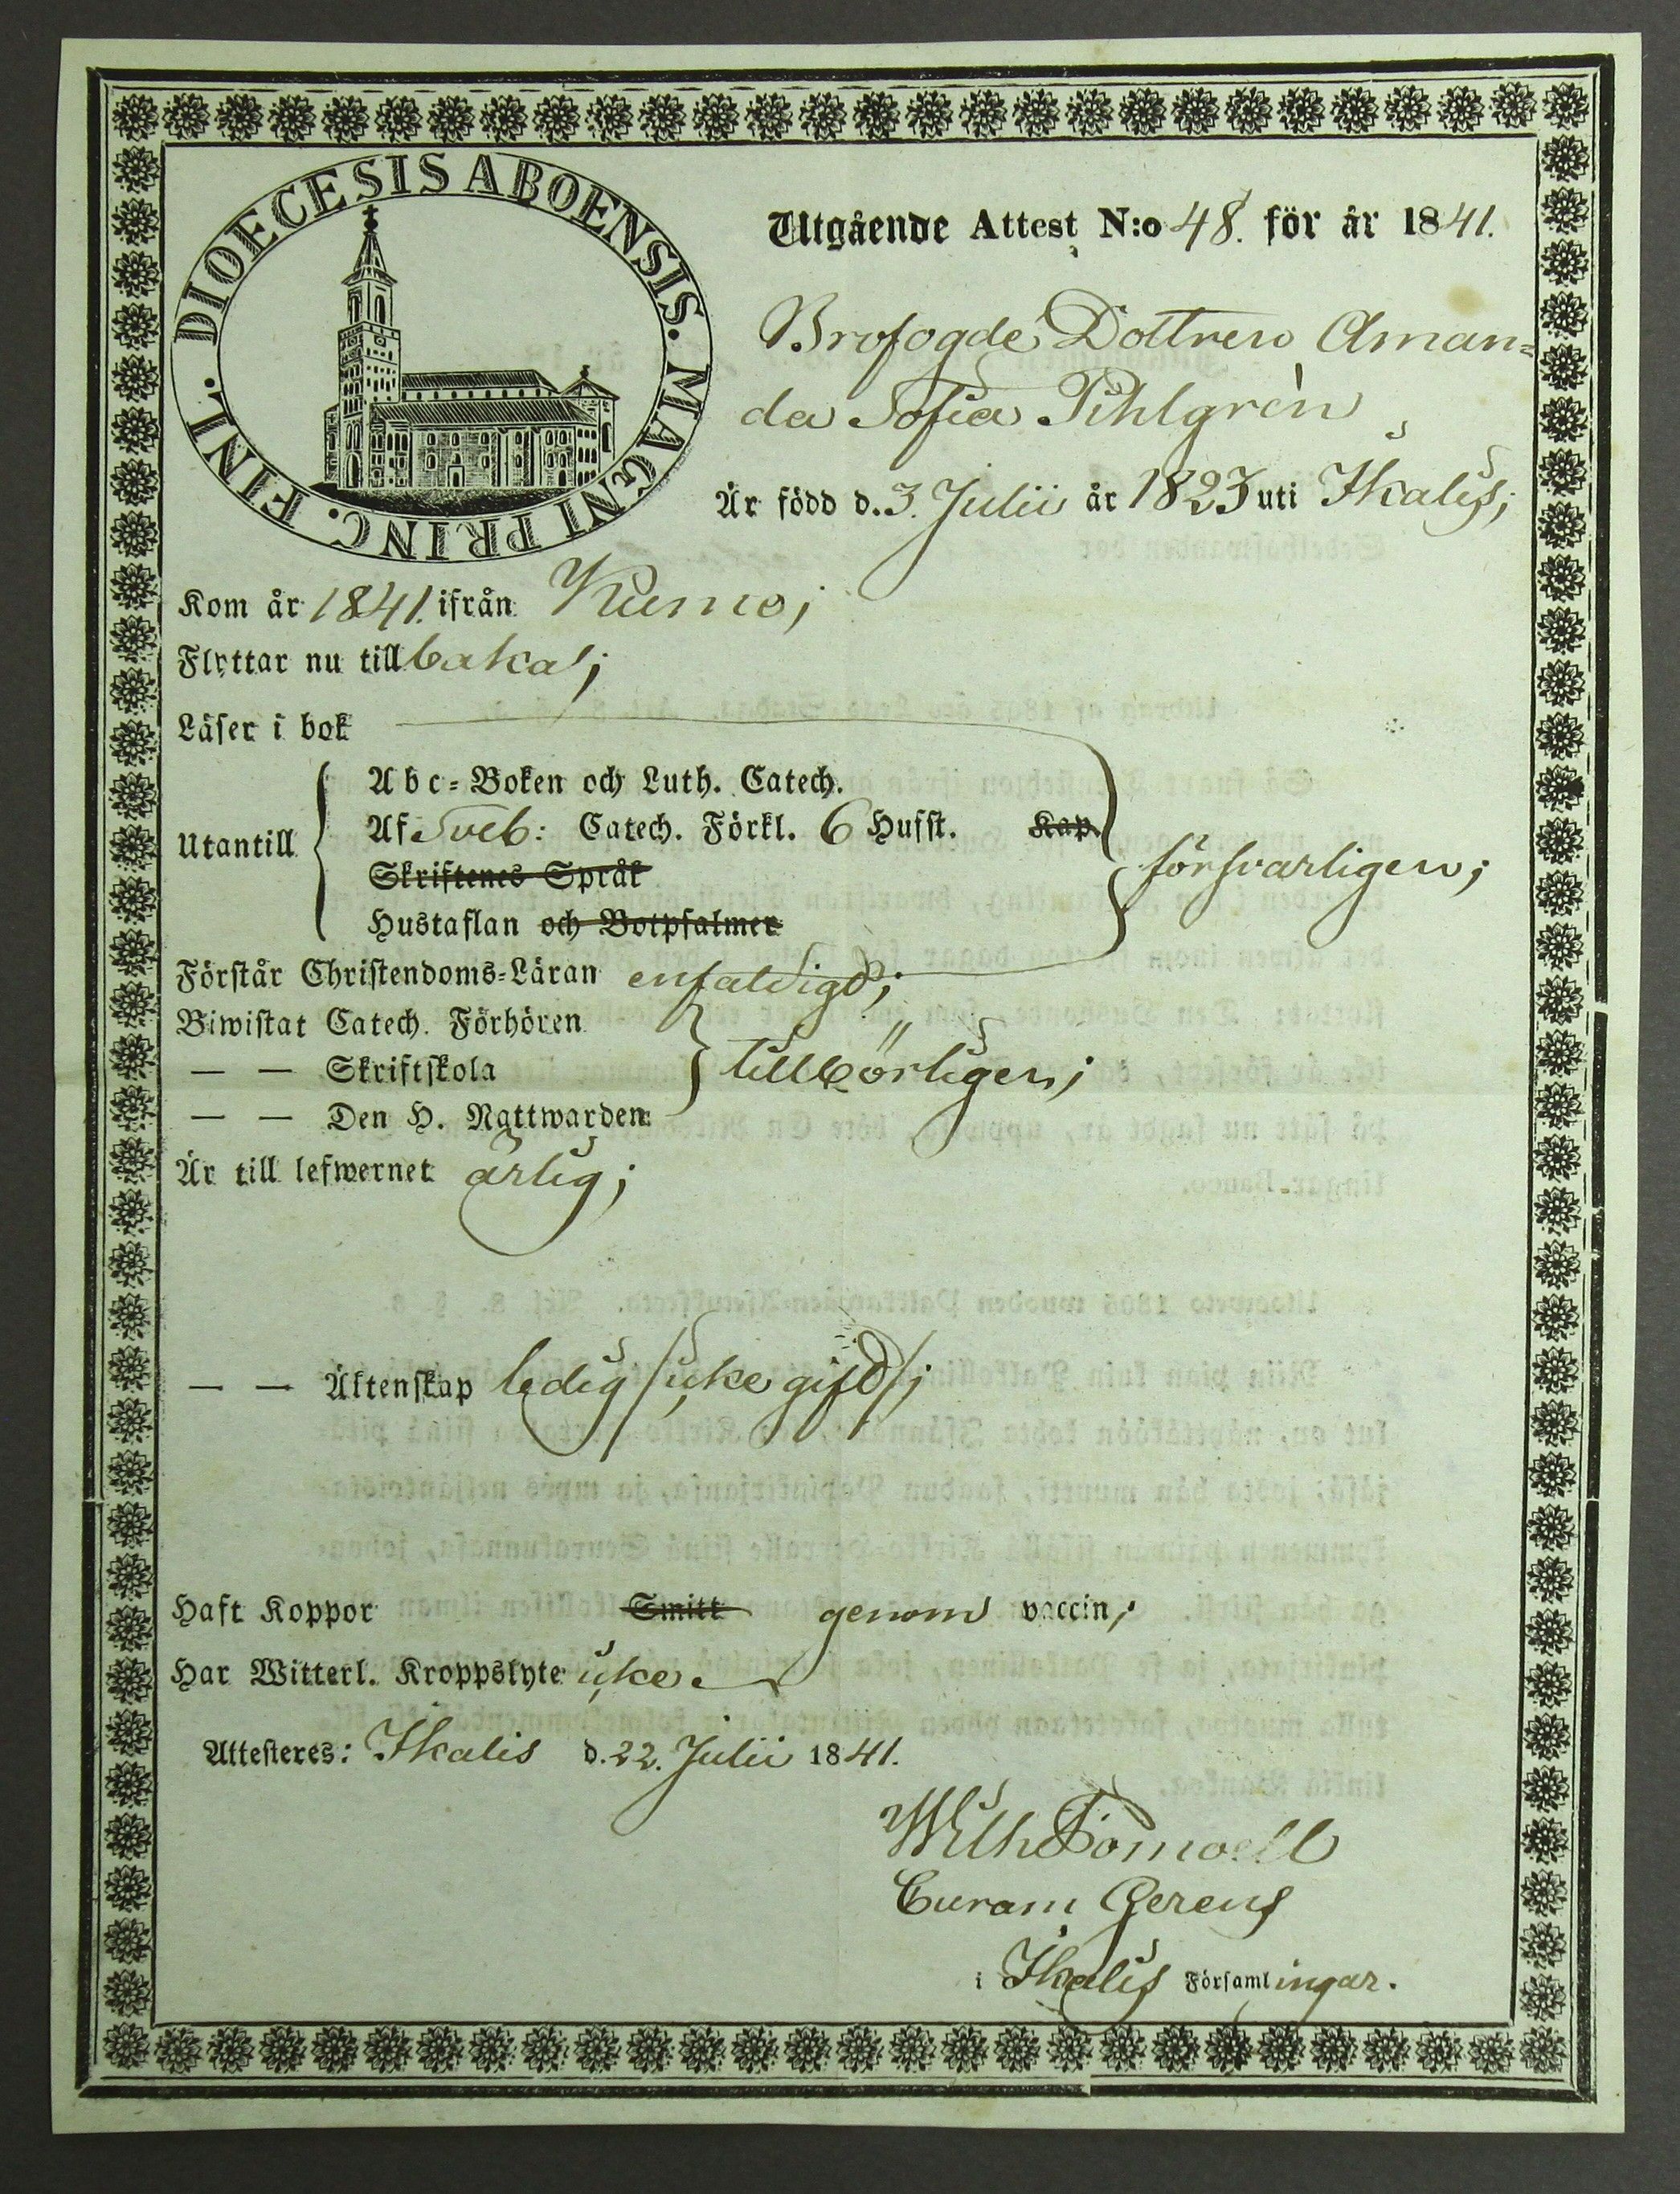 DIOECESIS ABOENSIS. MAGNI PRINC. FINL.
Utgående Attest N:o 48. för år 1841.
Brofogde Dottren Aman=
da Sofia Pihlgrèn
Är född d. 3. Julii år 1823 uti Ikalis;
Kom år 1841. ifrån Kumo;
Flyttar nu tillbaka;
Läser i bok
Utantill
Abc=Boken och Luth. Catech.
Af Sveb: Catech. Förkl. 6 Hufst. Kap.
Skriftenes Språk
Hustaflan och Botpsalmer
försvarligen;
Förstår Christendoms=Läran enfaldigt;
Biwistat Catech. Förhören
— — Skriftskola
— — Den H. Nattwarden
tillbörligen;
Är till lefwernet ärlig;
— — Äktenskap ledig /icke gift/;
Haft Koppor Smitt genom vaccin;
Har Witterl. Kroppslyte icke
Attesteres: Ikalis d. 22. Julii 1841.
Wilh
Curam Gerens
i Ikalis Församlingar.